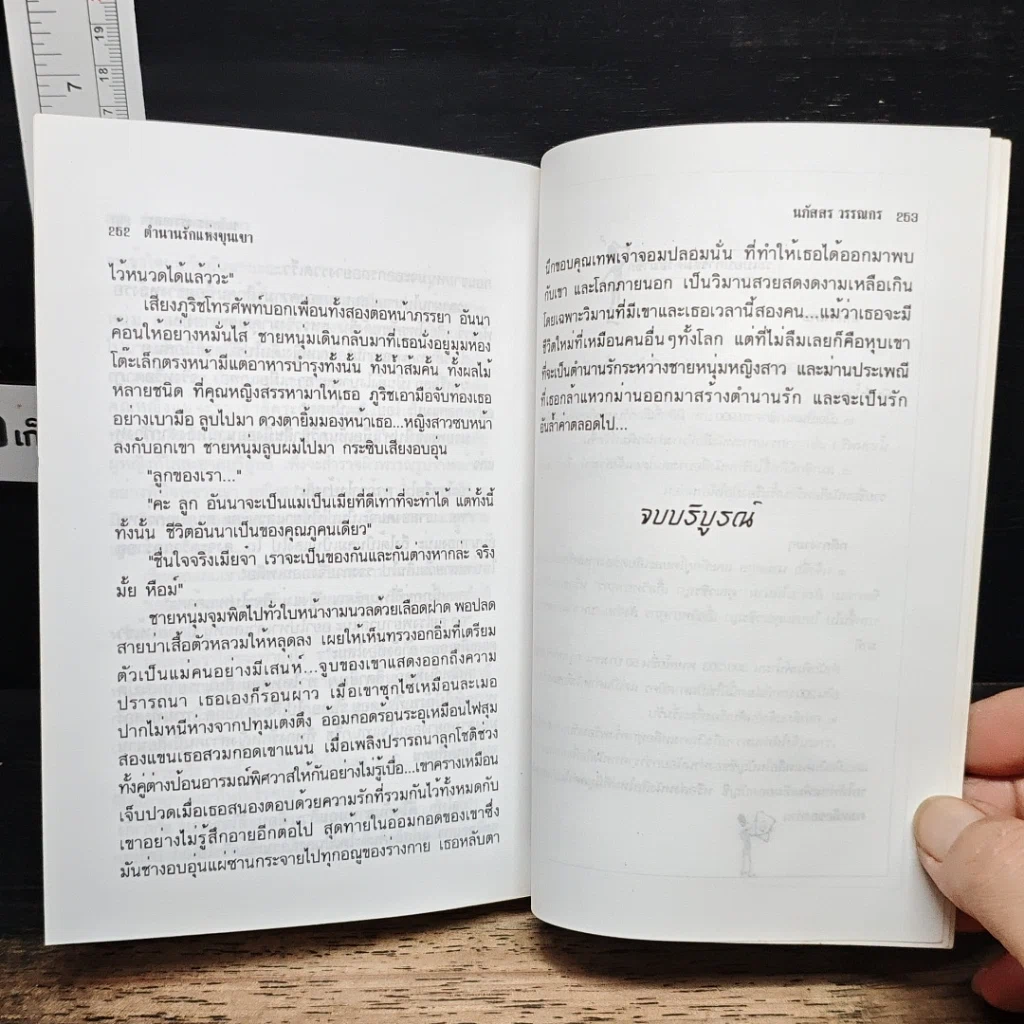 7
19
18
7
เก็
252 ตำนานรักแห่งขุนเขา
ไว้หนวดได้แล้วว่ะ"
เสียงภูริชโทรศัพท์บอกเพื่อนทั้งสองต่อหน้าภรรยา อันนา
ค้อนให้อย่างหมั่นไส้ ชายหนุ่มเดินกลับมาที่เธอนั่งอยู่มุมห้อง
โต๊ะเล็กตรงหน้ามีแต่อาหารบำรุงทั้งนั้น ทั้งน้ำส้มคั้น ทั้งผลไม้
หลายชนิด ที่คุณหญิงสรรหามาให้เธอ ภูริชเอามือจับท้องเธอ
อย่างเบามือ ลูบไปมา ดวงตายิ้มมองหน้าเธอ...หญิงสาวซบหน้า
ลงกับอกเขา ชายหนุ่มลูบผมไปมา กระซิบเสียงอบอุ่น
"ลูกของเรา..."
"ค่ะ ลูก อันนาจะเป็นแม่เป็นเมียที่ดีเท่าที่จะทำได้ แต่ทั้งนี้
ทั้งนั้น ชีวิตอันนาเป็นของคุณภูคนเดียว"
"ชื่นใจจริงเมียจ๋า เราจะเป็นของกันและกันต่างหากละ จริง
มั้ย หือม์"
ชายหนุ่มจุมพิตไปทั่วใบหน้างามนวลด้วยเลือดฝาด พอปลด
สายบ่าเสื้อตัวหลวมให้หลุดลง เผยให้เห็นทรวงอกอิ่มที่เตรียม
ตัวเป็นแม่คนอย่างมีเสน่ห์...จูบของเขาแสดงออกถึงความ
ปรารถนา เธอเองก็ร้อนผ่าว เมื่อเขาซุกไซ้เหมือนละเมอ
ปากไม่หนีห่างจากปทุมเต่งตึง อ้อมกอดร้อนระอุเหมือนไฟสุม
สองแขนเธอสวมกอดเขาแน่น เมื่อเพลิงปรารถนาลุกโชติช่วง
ทั้งคู่ต่างป้อนอารมณ์พิศวาสให้กันอย่างไม่รู้เบื่อ...เขาครางเหมือน
เจ็บปวดเมื่อเธอสนองตอบด้วยความรักที่รวมกันไว้ทั้งหมดกับ
เขาอย่างไม่รู้สึกอายอีกต่อไป สุดท้ายในอ้อมกอดของเขาซึ่ง
มันช่างอบอุ่นแผ่ซ่านกระจายไปทุกอณูของร่างกาย เธอหลับตา
นภัสสร วรรณกร 253
นึกขอบคุณเทพเจ้าจอมปลอมนั่น ที่ทำให้เธอได้ออกมาพบ
กับเขา และโลกภายนอก เป็นวิมานสวยสดงดงามเหลือเกิน
โดยเฉพาะวิมานที่มีเขาและเธอเวลานี้สองคน...แม้ว่าเธอจะมี
ชีวิตใหม่ที่เหมือนคนอื่นๆทั้งโลก แต่ที่ไม่ลืมเลยก็คือหุบเขา
ที่จะเป็นตำนานรักระหว่างชายหนุ่มหญิงสาว และม่านประเพณี
ที่เธอกล้าแหวกม่านออกมาสร้างตำนานรัก และจะเป็นรัก
อันล้ำค่าตลอดไป...
จบบริบูรณ์